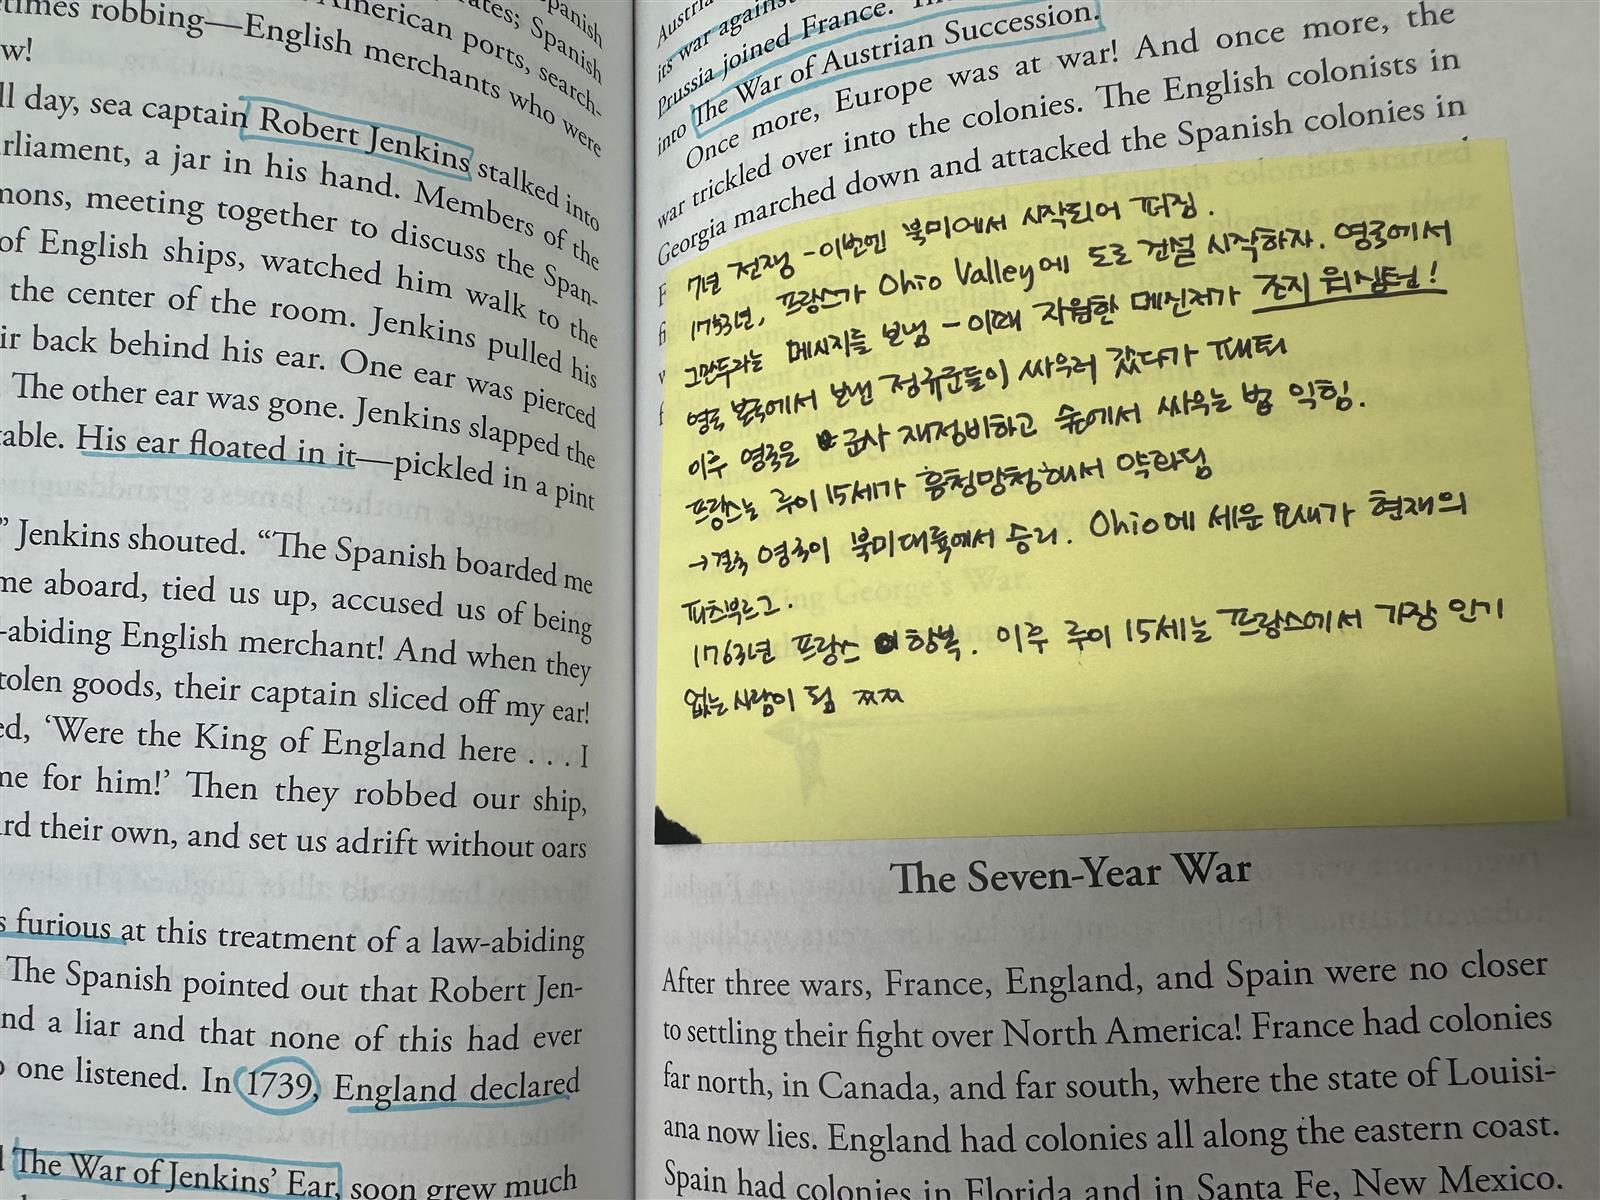 times robbing—English merchants who were
American ports, search-
Spanish
w!
ll day, sea captain Robert Jenkins stalked into
rliament, a jar in his hand. Members of the
mons, meeting together to discuss the Span-
of English ships, watched him walk to the
the center of the room. Jenkins pulled his
ir back behind his ear. One ear was pierced
The other ear was gone. Jenkins slapped the
able. His ear floated in it—pickled in a pint
” Jenkins shouted. “The Spanish boarded me
me aboard, tied us up, accused us of being
-abiding English merchant! And when they
tolen goods, their captain sliced off my ear!
ed, ‘Were the King of England here . . . I
me for him!’ Then they robbed our ship,
rd their own, and set us adrift without oars
s furious at this treatment of a law-abiding
The Spanish pointed out that Robert Jen-
nd a liar and that none of this had ever
o one listened. In 1739, England declared
The War of Jenkins’ Ear, soon grew much
its war against
Prussia joined France.
into The War of Austrian Succession.
Once more, Europe was at war! And once more, the
war trickled over into the colonies. The English colonists in
Georgia marched down and attacked the Spanish colonies in
7년 전쟁 - 이번엔 북미에서 시작되어 퍼짐.
1753년, 프랑스가 Ohio Valley에 도로 건설 시작하자. 영국에서
그만두라는 메시지를 보냄 - 이때 자원한 메신저가 조지 워싱턴!
영국 본국에서 보낸 정규군들이 싸우러 갔다가 패배
이후 영국은 군사 재정비하고 숲에서 싸우는 법 익힘.
프랑스는 루이 15세가 흥청망청해서 약화됨
→결국 영국이 북미대륙에서 승리. Ohio에 세운 요새가 현재의
피츠부르그.
1763년 프랑스 항복. 이후 루이 15세는 프랑스에서 가장 인기
없는 사람이 됨 ㅉㅉ
The Seven-Year War
After three wars, France, England, and Spain were no closer
to settling their fight over North America! France had colonies
far north, in Canada, and far south, where the state of Louisi-
ana now lies. England had colonies all along the eastern coast.
Spain had colonies in Florida and in Santa Fe, New Mexico.